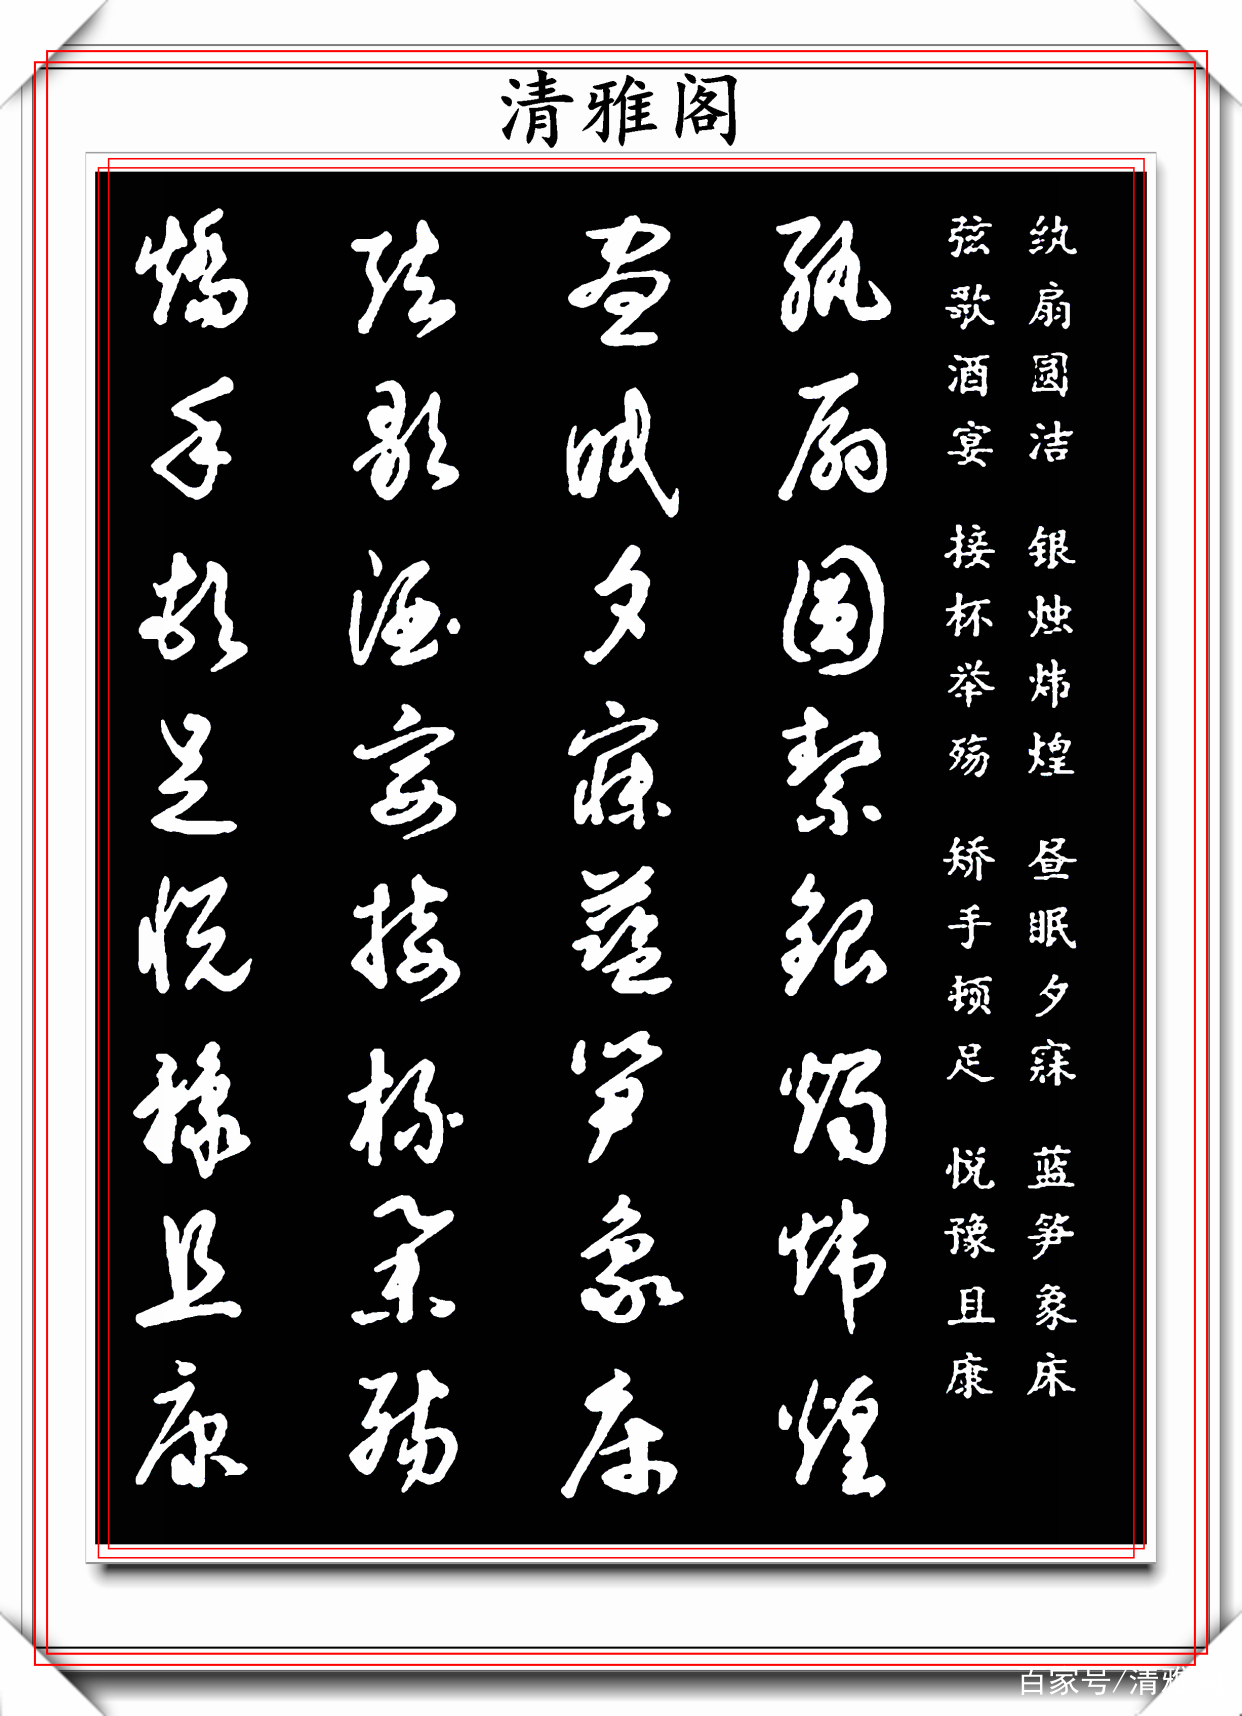 清雅阁
纨扇圆洁 银烛炜煌 昼眠夕寐 蓝笋象床
弦歌酒宴 接杯举殇 矫手顿足 悦豫且康
紈扇圓絜銀燭煒煌
晝眠夕寐藍笋象床
弦歌酒宴接杯舉殤
矯手頓足悅豫且康
百家号/清雅